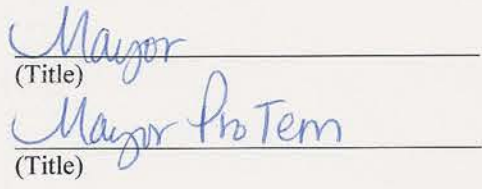 Mayor
(Title)
Mayor Pro Tem
(Title)